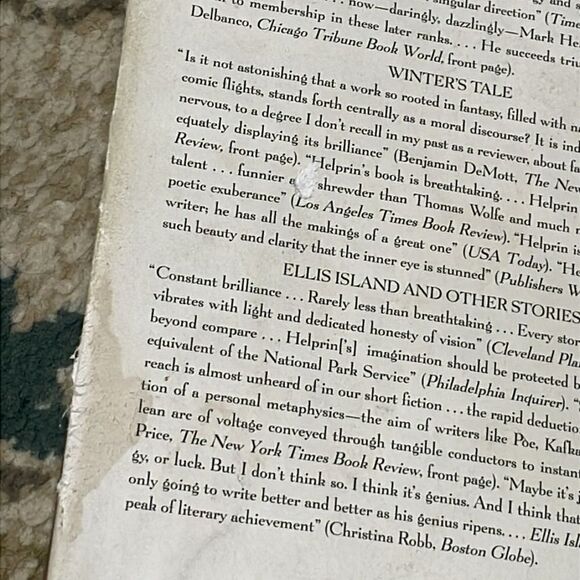 singular direction" (Time
to membership in these later ranks. . . . He succeeds
now—daringly, dazzlingly—Mark
Delbanco, Chicago Tribune Book World, front page).
WINTER'S TALE
"Is it not astonishing that a work so rooted in fantasy, filled with
comic flights, stands forth centrally as a moral discourse? It is
nervous, to a degree I don't recall in my past as a reviewer, about
equately displaying its brilliance" (Benjamin DeMott, The New
Review, front page). "Helprin's book is breathtaking. . . . Helprin
talent . . . funnier shrewder than Thomas Wolfe and much
poetic exuberance" (Los Angeles Times Book Review). "Helprin is
writer; he has all the makings of a great one" (USA Today). "He
such beauty and clarity that the inner eye is stunned" (Publishers W
ELLIS ISLAND AND OTHER STORIES
"Constant brilliance . . . Rarely less than breathtaking . . . Every stor
vibrates with light and dedicated honesty of vision" (Cleveland Pla
beyond compare . . . Helprin['s] imagination should be protected b
equivalent of the National Park Service" (Philadelphia Inquirer). "
reach is almost unheard of in our short fiction . . . the rapid deductio
tion of a personal metaphysics—the aim of writers like Poe, Kafka
lean arc of voltage conveyed through tangible conductors to instant
Price, The New York Times Book Review, front page). "Maybe it's j
gy, or luck. But I don't think so. I think it's genius. And I think that
only going to write better and better as his genius ripens. . . . Ellis Isl
peak of literary achievement" (Christina Robb, Boston Globe).